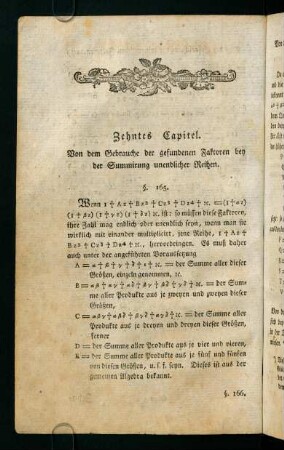 Zehntes Capitel.
Von dem Gebrauche der gefundenen Faktoren bey
der Summirung unendlicher Reihen.
§. 165.
Wenn 1 + Az + Bz² + Cz³ + Dz⁴ + ꝛc. = (1 + αz)
(1 + βz) (1 + γz) (1 + δz) ꝛc. ist: so müssen diese Faktoren,
ihre Zahl mag endlich oder unendlich seyn, wenn man sie
wirklich mit einander multiplicirt, jene Reihe, 1 + Az +
Bz² + Cz³ + Dz⁴ + ꝛc., hervorbringen. Es muß daher
auch unter der angeführten Voraussetzung
A = α + β + γ + δ + ε + ꝛc. = der Summe aller dieser
Größen, einzeln genommen, ꝛc.
B = αβ + αγ + αδ + βγ + βδ + γδ + ꝛc. = der Summe
aller Produkte aus je zweyen und zweyen dieser
Größen,
C = αβγ + αβδ + βγδ + αγδ + ꝛc. = der Summe aller
Produkte aus je dreyen und dreyen dieser Größen,
ferner
D = der Summe aller Produkte aus je vier und vieren,
E = der Summe aller Produkte aus je fünf und fünfen
von diesen Größen, u. s. f. seyn. Dieses ist aus der
gemeinen Algebra bekannt.
§. 166.